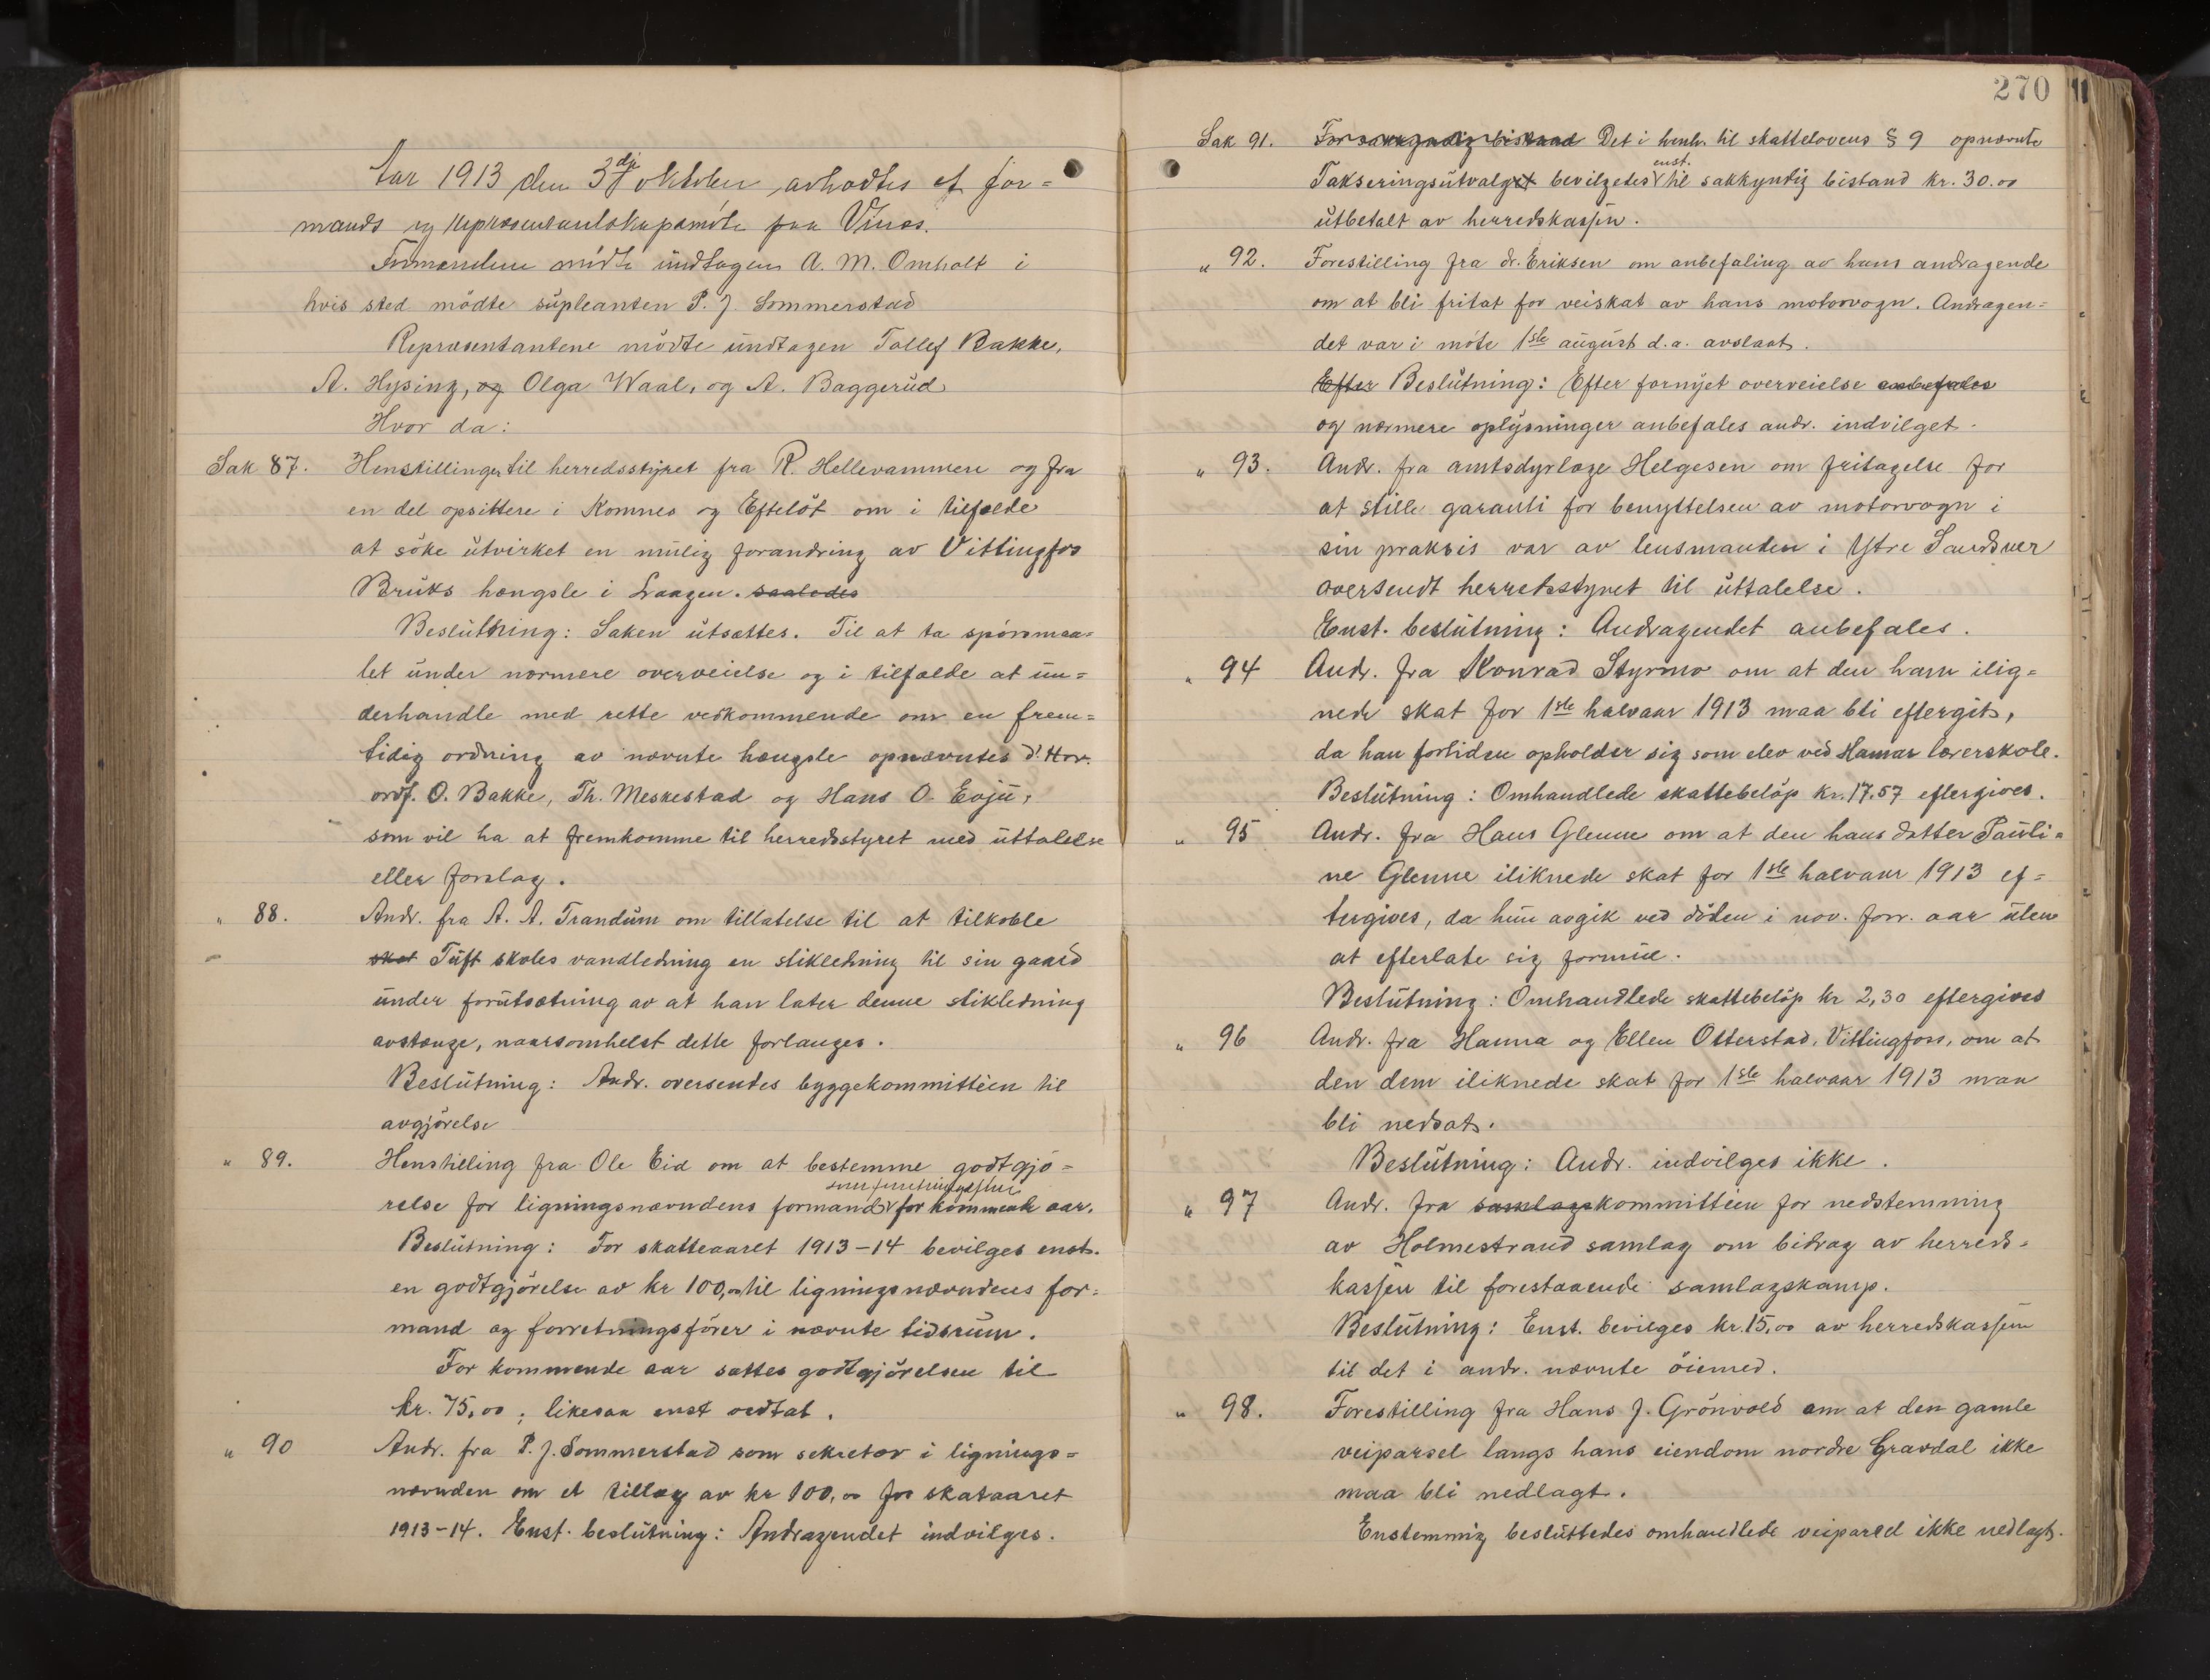 Aar 1913 den 3die oktober avholdtes et for=
mands og repræsentantskapsmöte paa Vines.
Formændene mödte undtagen A. M. Omholt i
hvis sted mödte supleanten P. J. Sommerstad
Repræsentantene mödte undtagen Tollef Bakke,
A. Hysing, og Olga Waal, og A. Baggerud
Hvor da:
Sak 87. Henstillinger til herredsstyret fra R. Hellevammen og fra
en del opsittere i Komnes og Eftelöt om i tilfælde
at söke utvirket en mulig forandring av Vittingfos
Bruks hængsle i Laagen. saaledes
Beslutning: Saken utsættes. Til at ta spörsmaa=
let under nærmere overveielse og i tilfælde at un=
derhandle med rette vedkommende om en frem=
tidig ordning av nævnte hængsle opnævntes d'Hrr.
ordf. O. Bakke, Th. Meskestad og Hans O. Evju,
som vil ha at fremkomme til herredsstyret med uttalelse
eller forslag.
" 88. Andr. fra A. A. Trandum om tillatelse til at tilkoble
skol Tuft skoles vandledning en stikledning til sin gaard
under forutsætning av at han later denne stikledning
avstænge, naarsomhelst dette forlanges.
Beslutning: Andr. oversendes byggekommittéen til
avgjörelse
" 89. Henstilling fra Ole Eid om at bestemme godtgjö=
som forretningsförer
relse for ligningsnævndens formand for kommende aar.
Beslutning: For skatteaaret 1913-14 bevilges enst.
en godtgjörelse av kr 100,00 til ligningsnævndens for=
mand og forretningsförer i nævnte tidsrum.
For kommende aar sættes godtgjörelsen til
kr. 75,00; likesaa enst vedtat.
" 90 Andr. fra P. J. Sommerstad som sekretær i lignings=
nævnden om et tillæg av kr 100,00 for skataaret
1913-14. Enst. beslutning: Andragendet indvilges.
270
Sak 91. For sakkyndig bistand Det i henh. til skattelovens § 9 opnævnte
enst.
Takseringsutvalget bevilgedes til sakkyndig bistand kr. 30.00
utbetalt av herredskassen.
" 92. Forestilling fra dr. Eriksen om anbefaling av hans andragende
om at bli fritat for veiskat av hans motorvogn. Andragen=
det var i möte 1ste august d.a. avslaat.
Efter Beslutning: Efter fornyet overveielse anbefales
og nærmere oplysninger anbefales andr. indvilget.
" 93. Andr. fra amtsdyrlæge Helgesen om fritagelse for
at stille garanti for benyttelsen av motorvogn i
sin praksis var av lensmanden i Ytre Sandsver
oversendt herredsstyret til uttalelse.
Enst. beslutning: Andragendet anbefales.
" 94 Andr. fra Konrad Styrmo om at den ham ilig=
nede skat for 1ste halvaar 1913 maa bli eftergit,
da han fortiden opholder sig som elev ved Hamar lærerskole.
Beslutning: Omhandlede skattebelöp kr. 17.57 eftergives.
" 95 Andr. fra Hans Glenne om at den hans datter Pauli=
ne Glenne iliknede skat for 1ste halvaar 1913 ef=
tergives, da hun avgik ved döden i nov. forr. aar uten
at efterlate sig formue.
Beslutning: Omhandlede skattebelöp kr 2,30 eftergives
" 96 Andr. fra Hanna og Ellen Otterstad, Vittingfoss, om at
den dem iliknede skat for 1ste halvaar 1913 maa
bli nedsat.
Beslutning: Andr. indvilges ikke.
" 97 Andr. fra samlagskommittéen for nedstemming
av Holmestrand samlag om bidrag av herreds=
kassen til forestaaende samlagskamp.
Beslutning: Enst. bevilges kr. 15,00 av herredskassen
til det i andr. nævnte öiemed.
" 98. Forestilling fra Hans J. Grönvold om at den gamle
veiparsel langs hans eiendom nordre Gravdal ikke
maa bli nedlagt.
Enstemmig besluttedes omhandlede veiparsel ikke nedlagt.